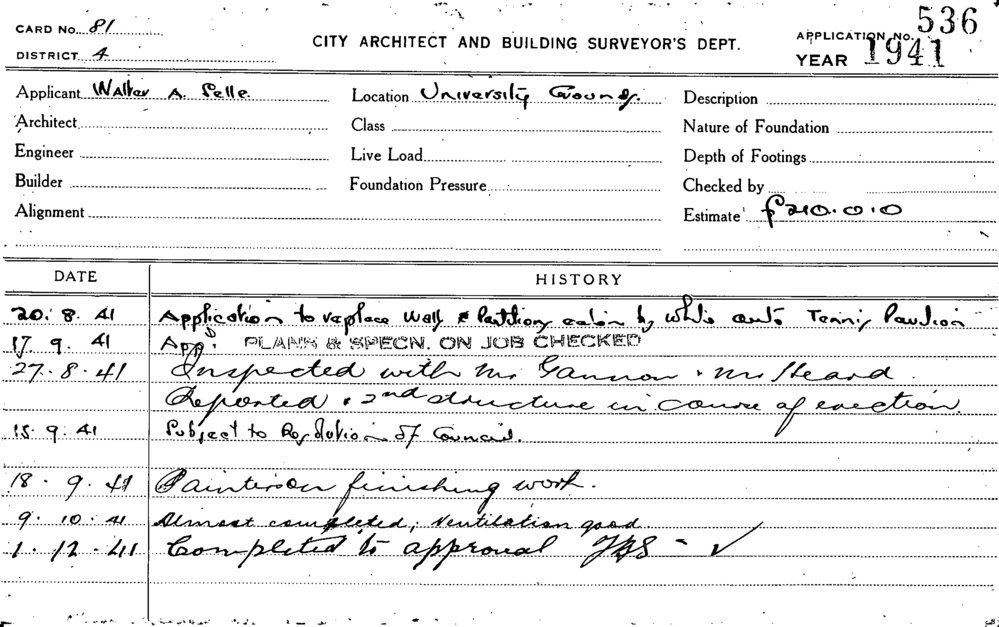 CARD NO. 81
DISTRICT 4
CITY ARCHITECT AND BUILDING SURVEYOR'S DEPT.
APPLICATION NO. 536
YEAR 1941
Applicant Walter A. Selle.
Location University Grounds.
Description
Architect
Class
Nature of Foundation
Engineer
Live Load
Depth of Footings
Builder
Foundation Pressure
Checked by
Alignment
Estimate £210.0.0
DATE HISTORY
20.8.41 Application to replace Walls & Partitions eaten by White ants Tennis Pavilion
17.9.41 App: PLANS & SPECN. ON JOB CHECKED
27.8.41 Inspected with Mr Gannon & Mr Heard.
Reported & 2nd structure in course of erection.
15.9.41 Subject to Resolution of Council.
18.9.41 Painters on finishing work.
9.10.41 Almost completed, ventilation good.
1.12.41 Completed to approval